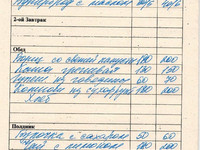 2-ой Завтрак
Обед
Борщ со свежей капустой 180 200
Каша гречневая 130 150
из говядины 60 70
Компот из сухофрук 180 200
Хлеб
Полдник
с сахаром 50 60
Чай с лимоном 180 200